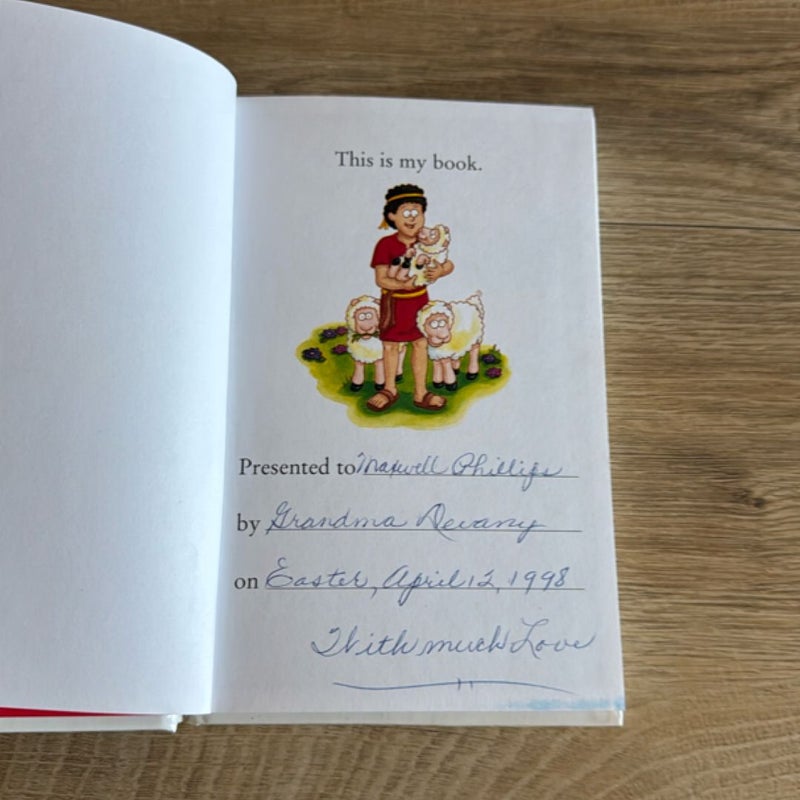 This is my book.
Presented to Maxwell Phillips
by Grandma Devany
on Easter, April 12, 1998
With much Love